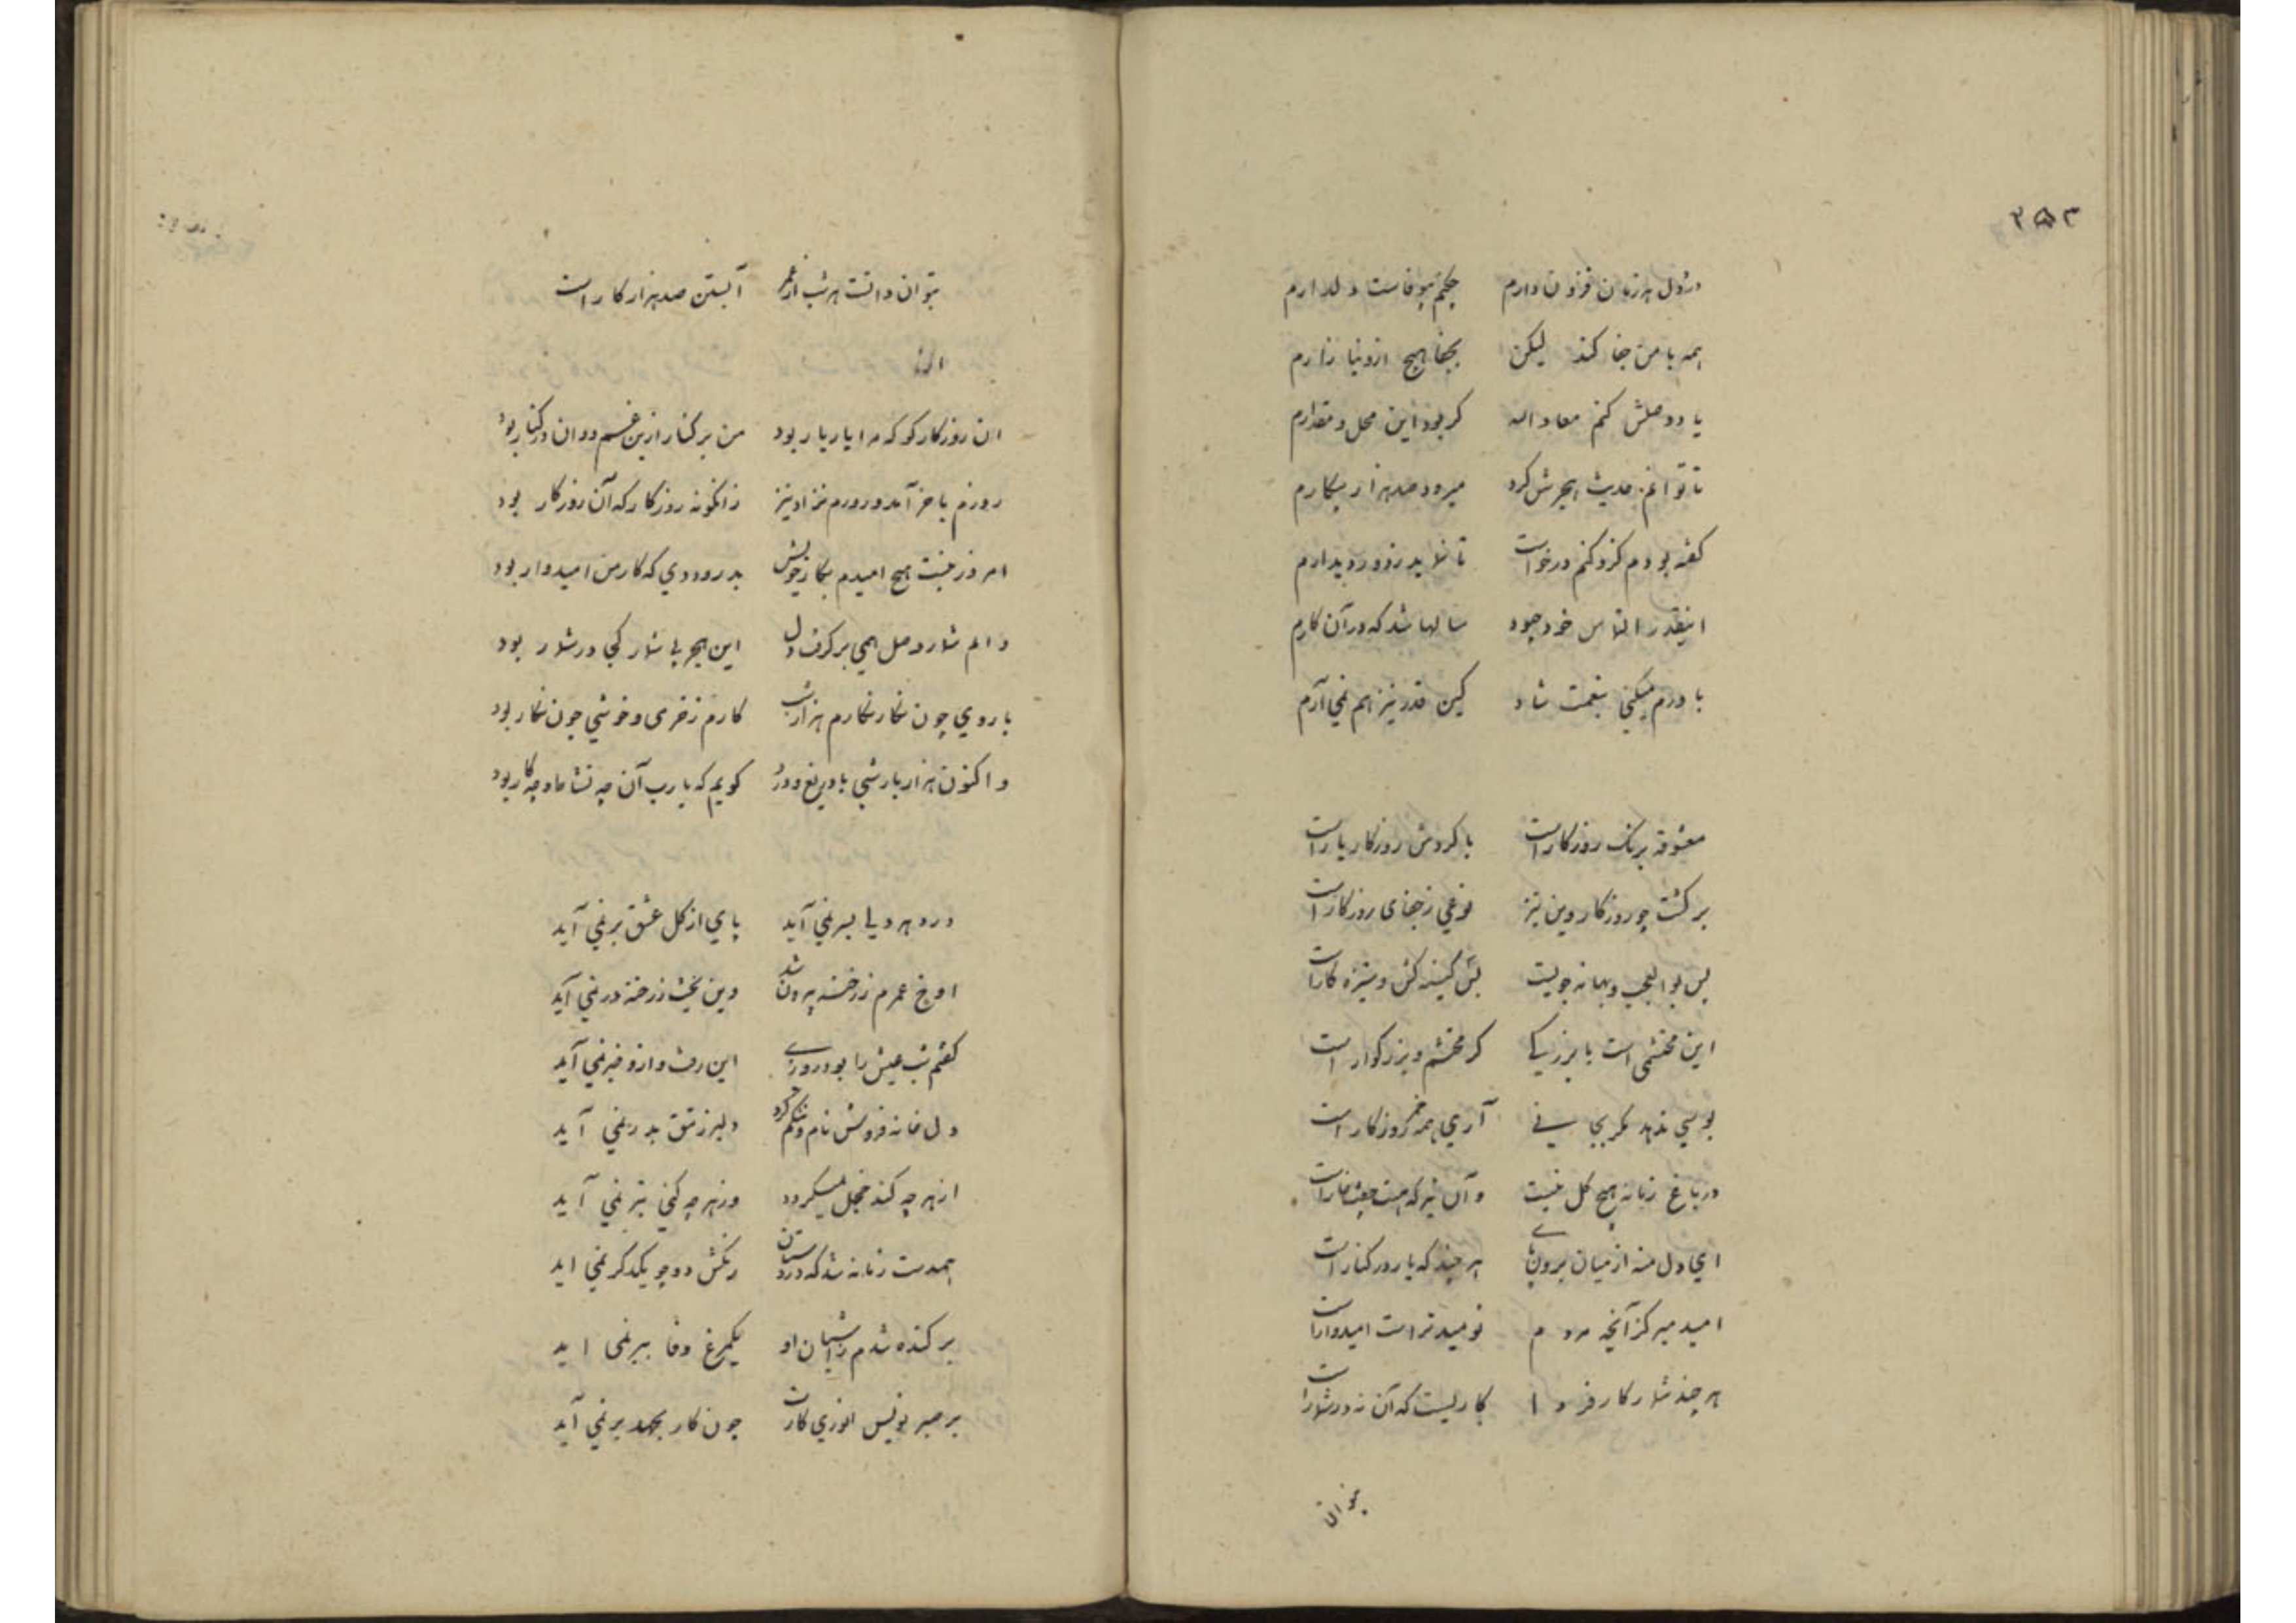 ۲۵۳
دردل هر زمان فزون دارم چکنم بیوفاست دلدارم
همه با من جفا کند لیکن بجفا هیچ ازو نیازارم
یاد وصلش کنم معاد الله کر بود این محل و مقدارم
تا توانم حدیث هجرش کرد میرود صد هزار بیکارم
کفته بودم کزو کنم درخواست تا نماید ز دور دیدارم
اینقدر التماس خود چبود سالها شد که در آن کارم
باورم میکنی بنعمت شاه کین قدر نیز هم نمی آرم
معشوقه برنک روزکار است با کردش روزکار یار است
برکشت چو روزکار وین نیز نوعی ز جفای روزکار است
بس بوالعجب و بهانه جویست بس کینه کش و ستیزه کار است
این محتشمی است با بزرکی کر محتشم و بزرکوار است
بوسی ندهد مکر بجانی آری همه خمر روزکار است
در باغ زمانه هیچ کل نیست وآن نیز که هست جفت خار است
ای دل منه از میان برون پای هر چند که یار در کنار است
امید مبر کز آنچه مردم نومیدتر است امیدوار است
هر چند شمار کار فردا کاریست که آن نه در شمار است
بتوان
بتوان دانست هر شب از عمر آبستن صد هزار کار است
ان روزکار کو که مرا یار یار بود من بر کنار ازین غم و او در کنار بود
روزم باخر آمد و روزم نزاد نیز زانکونه روزکار که آن روزکار بود
امروز نیست هیچ امیدم بکار خویش بدرود دی که کار من امیدوار بود
دایم شمار وصل همی برکرفت دل این هجر بی شمار کی در شمار بود
با روی چون نکار نکارم هزار شب کارم ز خرمی و خوشی چون نکار بود
واکنون هزار بار شبی با دریغ و درد کویم که یا رب آن چه نشاط و چه کار بود
درد هر دیا بسر نمی آید پای از کل عشق بر نمی آید
اوخ عمرم ز رخنه بیرون شد وین بخت ز رخنه در نمی آید
کفتم شب عیش را بود روزی این رفت و ازو خبر نمی آید
دل خانه فروش نام و ننکم کرد دلبر ز تتق بدر نمی آید
از هر چه کند خجل نمیکردد وز هر چه کنی بتر نمی آید
همدست زمانه شد که در دستان رنکش دو چو یکدکر نمی اید
برکنده شدم ز آشیان او یکمرغ وفا ببر نمی اید
بر صبر نویس انوری کارت چون کار بجهد بر نمی آید